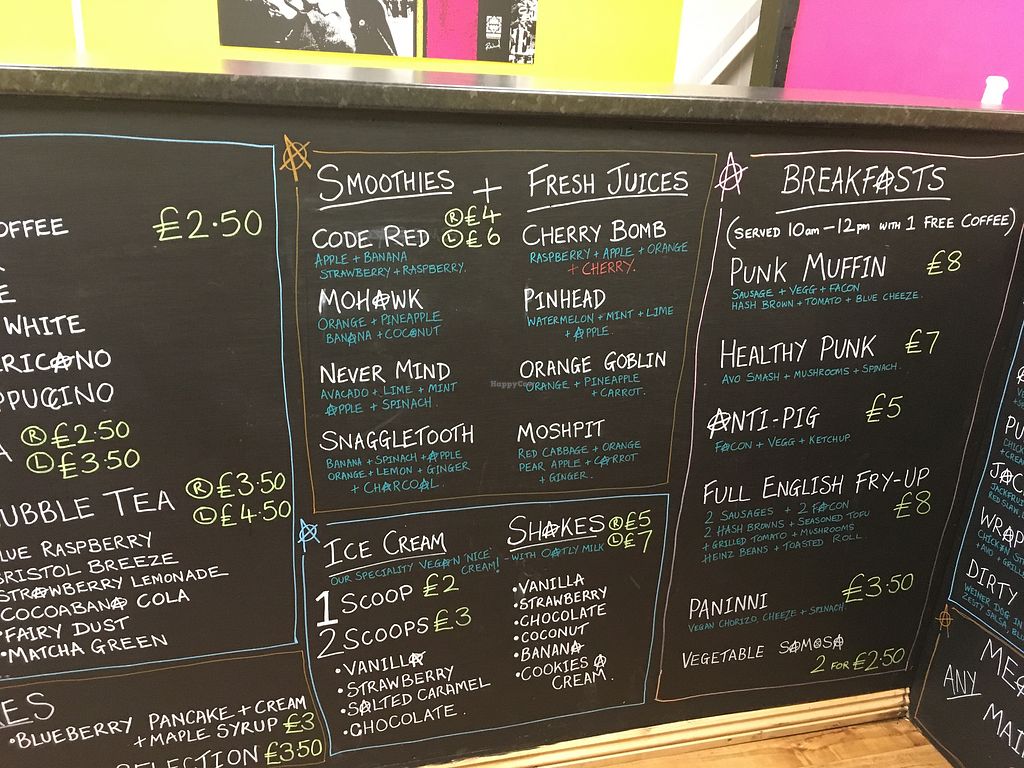 OFFEE £2.50
WHITE
RICANO
PPUCCINO
Ⓡ £2.50
Ⓛ £3.50
UBBLE TEA Ⓡ £3.50
Ⓛ £4.50
LUE RASPBERRY
BRISTOL BREEZE
STRAWBERRY LEMONADE
COCOABANA COLA
•FAIRY DUST
•MATCHA GREEN
KES
•BLUEBERRY PANCAKE + CREAM
+ MAPLE SYRUP £3
SELECTION £3.50
SMOOTHIES + FRESH JUICES
Ⓡ £4
Ⓛ £6
CODE RED
APPLE + BANANA
STRAWBERRY + RASPBERRY.
MOHAWK
ORANGE + PINEAPPLE
BANANA + COCONUT
NEVER MIND
AVACADO + LIME + MINT
APPLE + SPINACH.
SNAGGLETOOTH
BANANA + SPINACH + APPLE
ORANGE + LEMON + GINGER
+ CHARCOAL.
CHERRY BOMB
RASPBERRY + APPLE + ORANGE
+ CHERRY.
PINHEAD
WATERMELON + MINT + LIME
+ APPLE.
ORANGE GOBLIN
ORANGE + PINEAPPLE
+ CARROT.
MOSHPIT
RED CABBAGE + ORANGE
PEAR APPLE + CARROT
+ GINGER.
HappyCow
ICE CREAM
OUR SPECIALITY VEGAN 'NICE' CREAM!
1 SCOOP £2
2 SCOOPS £3
•VANILLA
•STRAWBERRY
•SALTED CARAMEL
•CHOCOLATE.
SHAKES Ⓡ £5
Ⓛ £7
- WITH OATLY MILK
•VANILLA
•STRAWBERRY
•CHOCOLATE
•COCONUT
•BANANA
•COOKIES A
CREAM.
BREAKFASTS
(SERVED 10am - 12pm WITH 1 FREE COFFEE)
PUNK MUFFIN £8
SAUSAGE + VEGG + FACON
HASH BROWN + TOMATO + BLUE CHEEZE.
HEALTHY PUNK £7
AVO SMASH + MUSHROOMS + SPINACH.
ANTI-PIG £5
FACON + VEGG + KETCHUP.
FULL ENGLISH FRY-UP £8
2 SAUSAGES + 2 FACON
2 HASH BROWNS + SEASONED TOFU
+ GRILLED TOMATO + MUSHROOMS
HEINZ BEANS + TOASTED ROLL.
PANINNI £3.50
VEGAN CHORIZO, CHEEZE + SPINACH.
VEGETABLE SAMOSA
2 FOR £2.50
PU
JAC
JACKFRUI
RED SLAW
WRAP
CHICK'N ST
+ AVO + GRILL
DIRTY
WEINER DOG IN
ZESTY SALSA, BL
ME
ANY
MAI